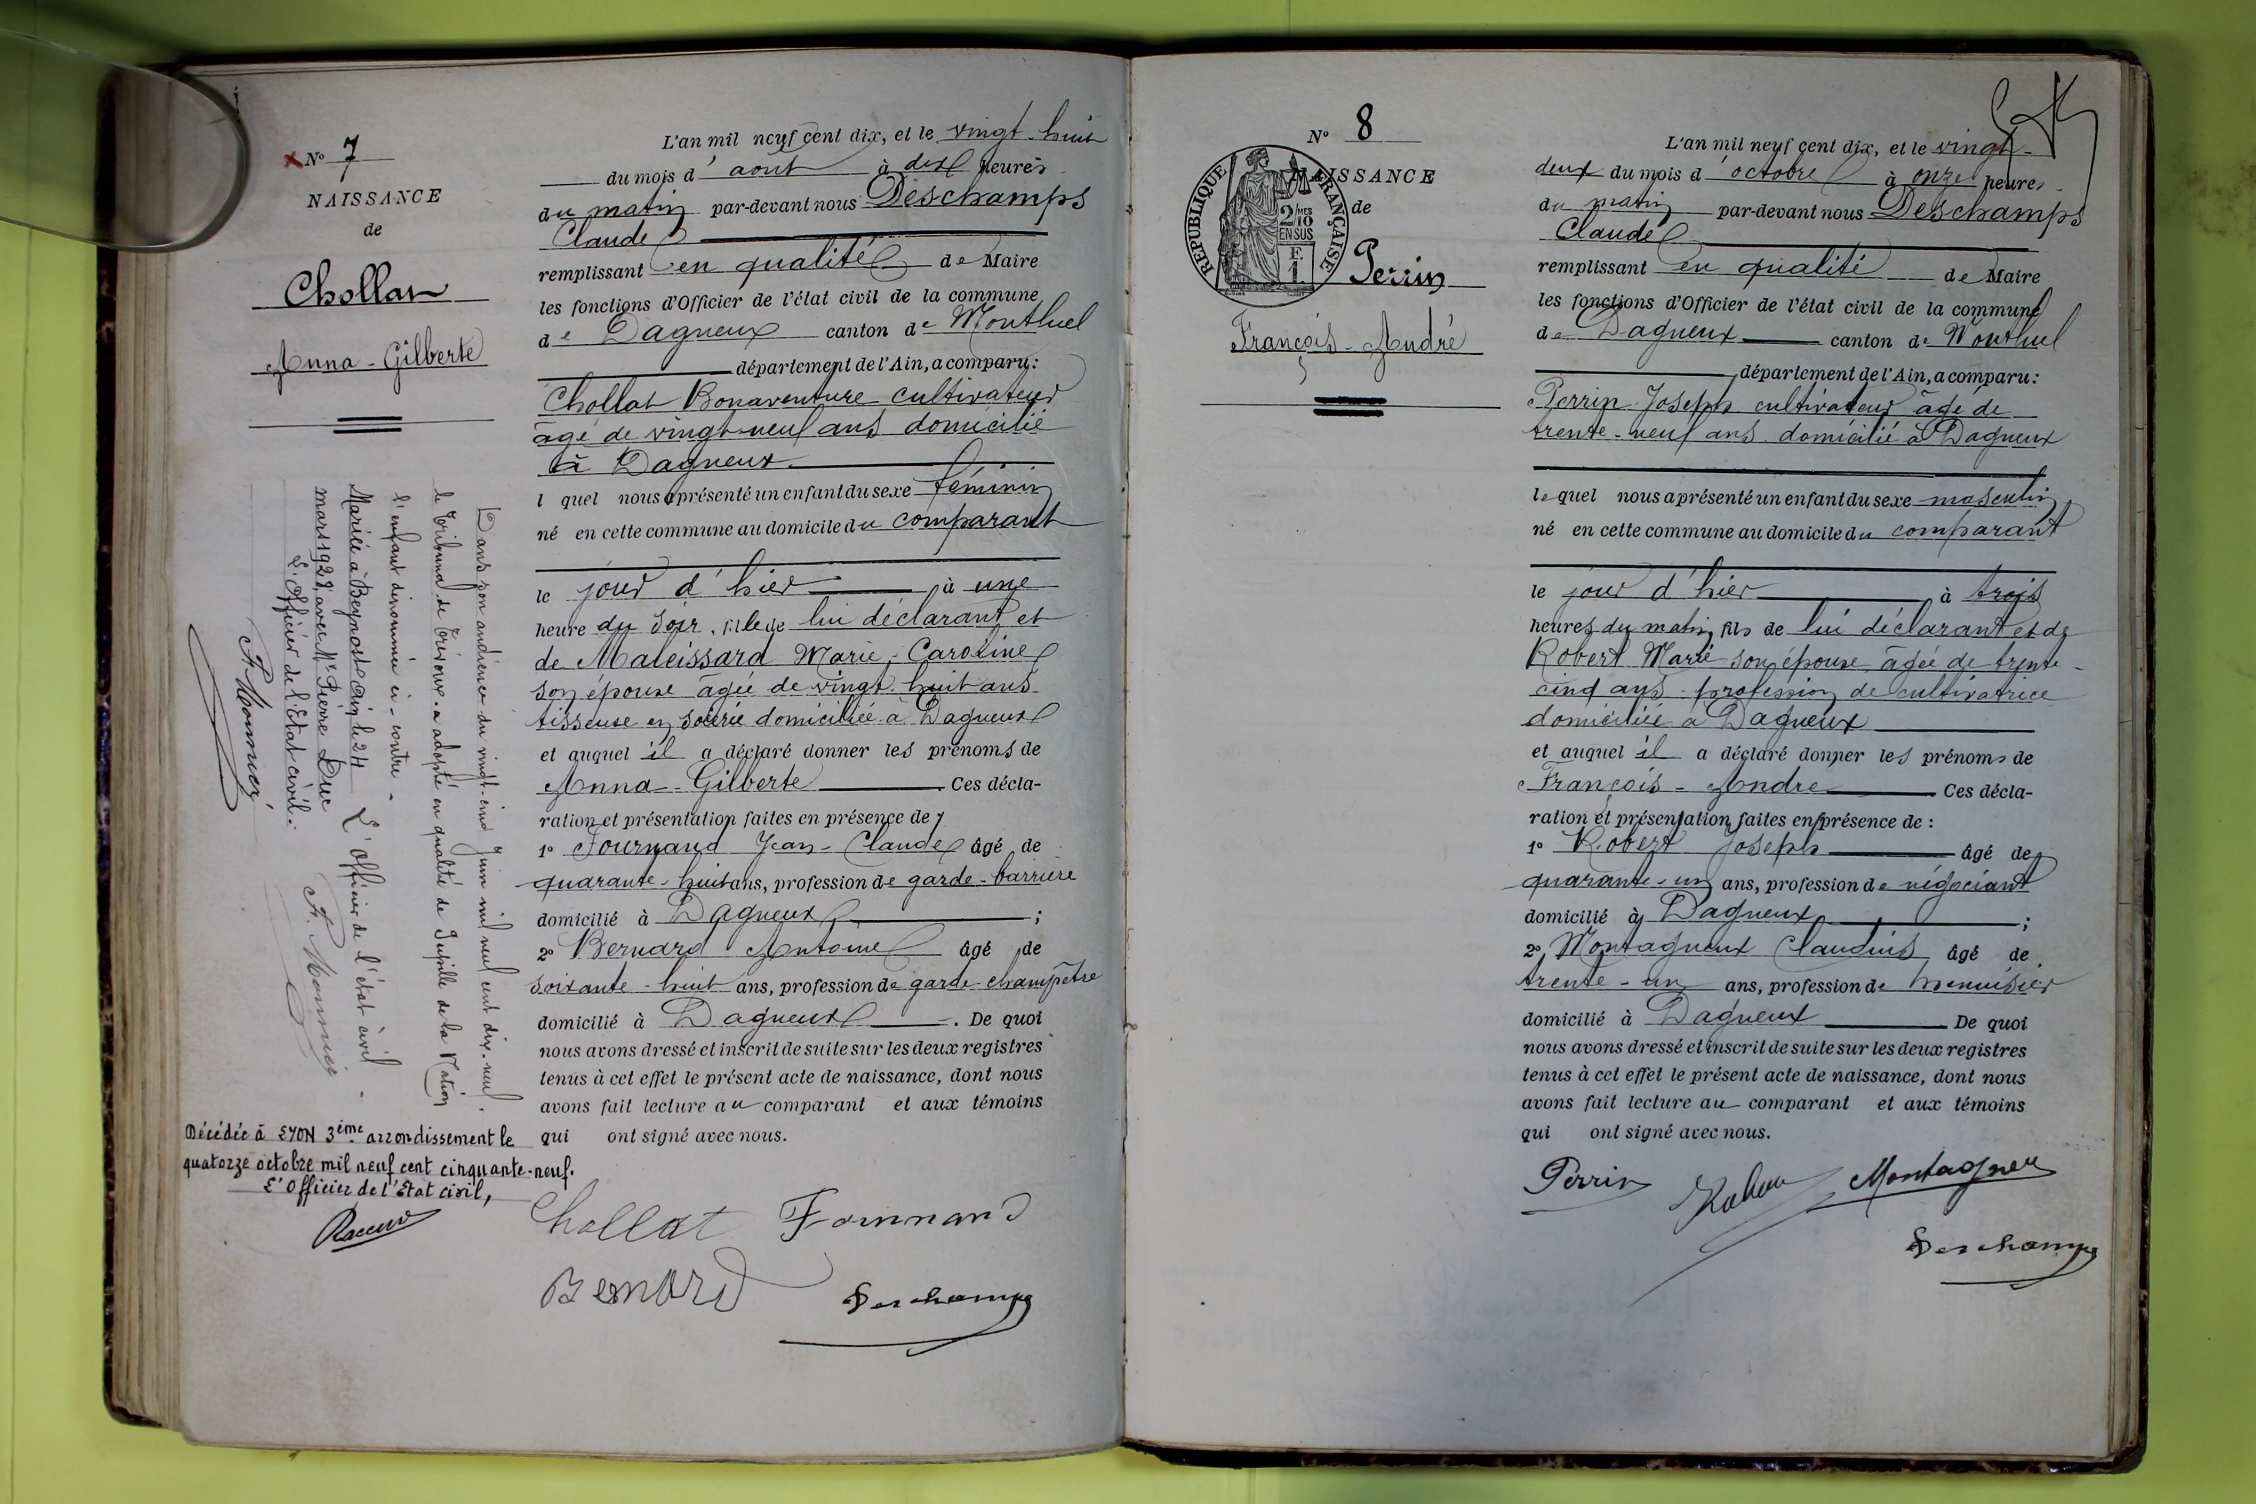 N° 7
NAISSANCE
de
Chollat
Anna-Gilberte
L'an mil neuf cent dix, et le vingt-huit
du mois d'août à dix heures
du matin par-devant nous Deschamps
Claude
remplissant en qualité de Maire
les fonctions d'Officier de l'état civil de la commune
de Dagneux canton de Montluel
département de l'Ain, a comparu:
Chollat Bonaventure cultivateur
âgé de vingt-neuf ans domicilié
à Dagneux
l quel nous a présenté un enfant du sexe féminin
né en cette commune au domicile du comparant
le jour d'hier à une
heure du soir, fille de lui déclarant et
de Maleissard Marie-Caroline
son épouse âgée de vingt-huit ans
tisseuse en soierie domiciliée à Dagneux
et auquel il a déclaré donner les prénoms de
Anna-Gilberte Ces décla-
ration et présentation faites en présence de :
1° Fournand Jean-Claude âgé de
quarante-huit ans, profession de garde-barrière
domicilié à Dagneux ;
2° Bernard Antoine âgé de
soixante-huit ans, profession de garde-champêtre
domicilié à Dagneux. De quoi
nous avons dressé et inscrit de suite sur les deux registres
tenus à cet effet le présent acte de naissance, dont nous
avons fait lecture au comparant et aux témoins
qui ont signé avec nous.
Chollat Fournand
Bernard Deschamps
Dans son audience du vingt-cinq Juin mil neuf cent dix-neuf.
le Tribunal de Trévoux a adopté en qualité de Pupille de la Nation
l'enfant dénommée ci-contre.
L'Officier de l'état civil.
F. Monnier
Mariée à Beynost Ain le 24
mars 1928, avec Mr Pierre Duc
L'Officier de l'Etat civil:
F. Monnier
Décédée à LYON 3ème arrondissement le
quatorze octobre mil neuf cent cinquante-neuf.
L'Officier de l'Etat civil,
N° 8
NAISSANCE
de
RÉPUBLIQUE FRANÇAISE
2/MES
10
EN SUS
F.
1
Perrin
François-André
L'an mil neuf cent dix, et le vingt-
deux du mois d'octobre à onze heures
du matin par-devant nous Deschamps
Claude
remplissant en qualité de Maire
les fonctions d'Officier de l'état civil de la commune
de Dagneux canton de Montluel
département de l'Ain, a comparu:
Perrin Joseph cultivateur âgé de
trente-neuf ans domicilié à Dagneux
lequel nous a présenté un enfant du sexe masculin
né en cette commune au domicile du comparant
le jour d'hier à trois
heures du matin, fils de lui déclarant et de
Robert Marie son épouse âgée de trente-
cinq ans profession de cultivatrice
domiciliée à Dagneux
et auquel il a déclaré donner les prénoms de
François-Andre Ces décla-
ration et présentation faites en présence de :
1° Robert Joseph âgé de
quarante-un ans, profession de négociant
domicilié à Dagneux ;
2° Montagneux Claudius âgé de
trente-un ans, profession de menuisier
domicilié à Dagneux De quoi
nous avons dressé et inscrit de suite sur les deux registres
tenus à cet effet le présent acte de naissance, dont nous
avons fait lecture au comparant et aux témoins
qui ont signé avec nous.
Perrin Montagneu
Deschamps